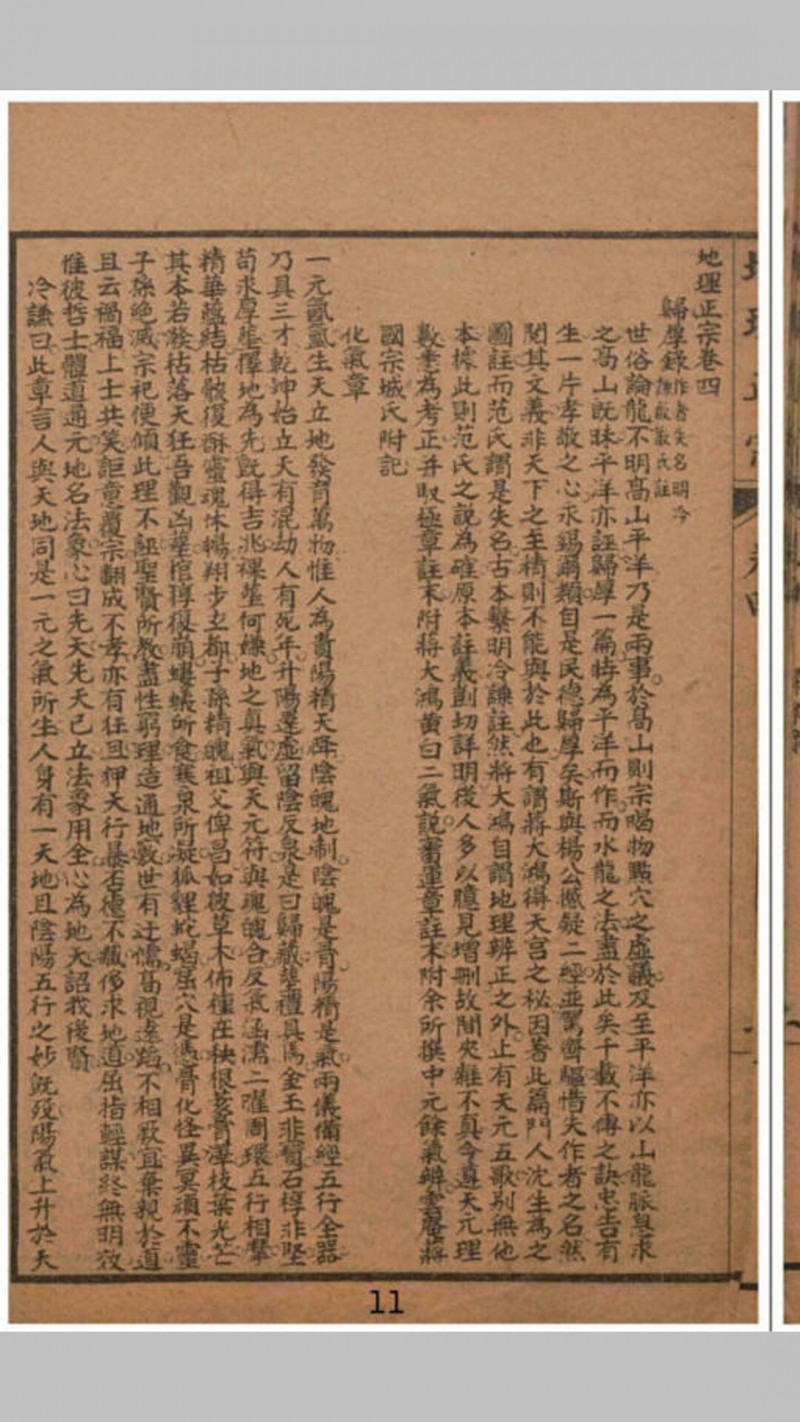 地理正宗卷四
歸厚錄作者失名明冷
謙啟敬氏註
世俗論龍不明高山平洋乃是兩事於高山則宗喝物點穴之虛議及至平洋亦以山龍脈息求
之高山既昧平洋亦誣歸厚一篇特為平洋而作而水龍之法盡於此矣千載不傳之訣忠告有
生一片孝敬之心永錫爾類自是民德歸厚矣斯與楊公撼疑二經並駕齊驅惜夫作者之名然
閱其文義非天下之至精則不能與於此也有謂蔣大鴻得天宮之秘因著此篇門人沈生為之
圖註而范氏謂是失名古本繫明冷謙註然蔣大鴻自謂地理辨正之外止有天元五歌別無他
本據此則范氏之說為確原本註義剴切詳明後人多以臆見增刪故間夾雜不真今遵天元理
數悉為考正并馭極章註末附蔣大鴻黃白二氣說蓄運章註末附余所撰中元餘氣辨雲麓蔣
國宗城氏附記
化氣章
一元氤氳生天立地發育萬物惟人為貴陽精天降陰魄地制陰魄是骨陽精是氣兩儀備經五行全器
乃具三才乾坤始立天有混劫人有死年升陽還虛留陰反泉是曰歸藏葬禮具焉金玉非寶石椁非堅
苟求厚葬擇地為先既得吉兆裸葬何嫌地之真氣與天元符與魂魄合反氣涵濡二曜周環五行相摩
精華蘊結枯骸復酥靈魂休暢翔步玄都子孫精魄祖父俾昌如彼草木佈種在秧根荄膏澤枝葉光芒
其本若發枯落夭狂吾觀凶葬棺椁復崩螻蟻所食寒泉所凝狐狸蛇蝎窟穴是憑膏化怪異冥頑不靈
子孫絕滅宗祀便傾此理不誣聖賢所教盡性窮理造通地數世有迂儒高視遠蹈不相厥宜棄親於道
且云禍福上士共笑詎意覆宗翻成不孝亦有狂且狎天行暴否德不臧侈求地道屈指輕謀終無明效
惟彼哲士體道通元地名法象心曰先天先天已立法象用全心為地天詔我後賢
冷謙曰此章言人與天地同是一元之氣所生人身有一天地且陰陽五行之妙既歿陽氣上升於天
11